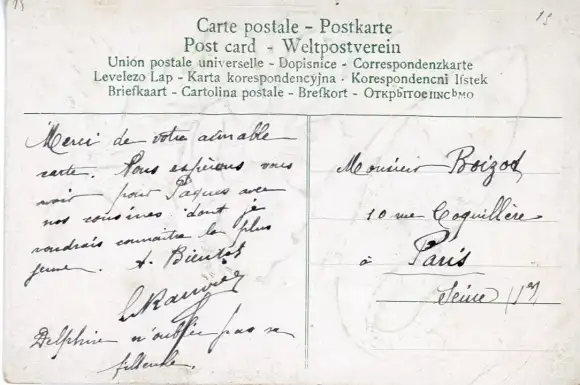 15
15
Carte postale - Postkarte
Post card - Weltpostverein
Union postale universelle - Dopisnice - Correspondenzkarte
Levelezo Lap - Karta korespondencyjna - Korespondencni lístek
Briefkaart - Cartolina postale - Brefkort - Открытое письмо
Merci de votre aimable
carte. Nous espérons vous
voir pour Paques avec
nos cousines dont je
voudrais connaitre la plus
jeune. A Bientôt
Delphine n'oublie pas sa
filleule.
Monsieur Boizot
10 rue Coquillère
à Paris
Seine